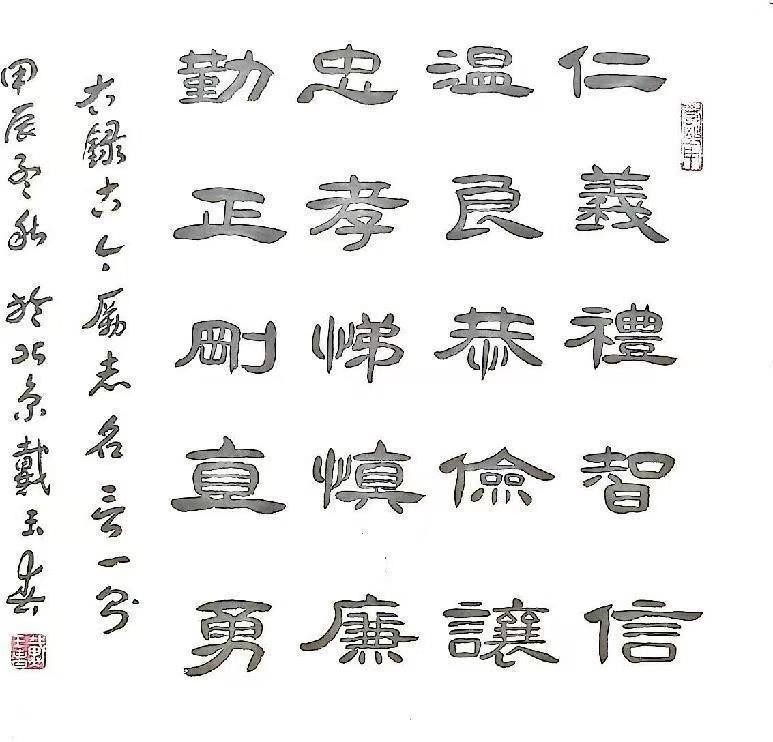 仁義禮智信
温良恭儉讓
忠孝悌慎廉
勤正剛直勇
右録古今励志名言一则
甲辰孟秋於北京戴玉春